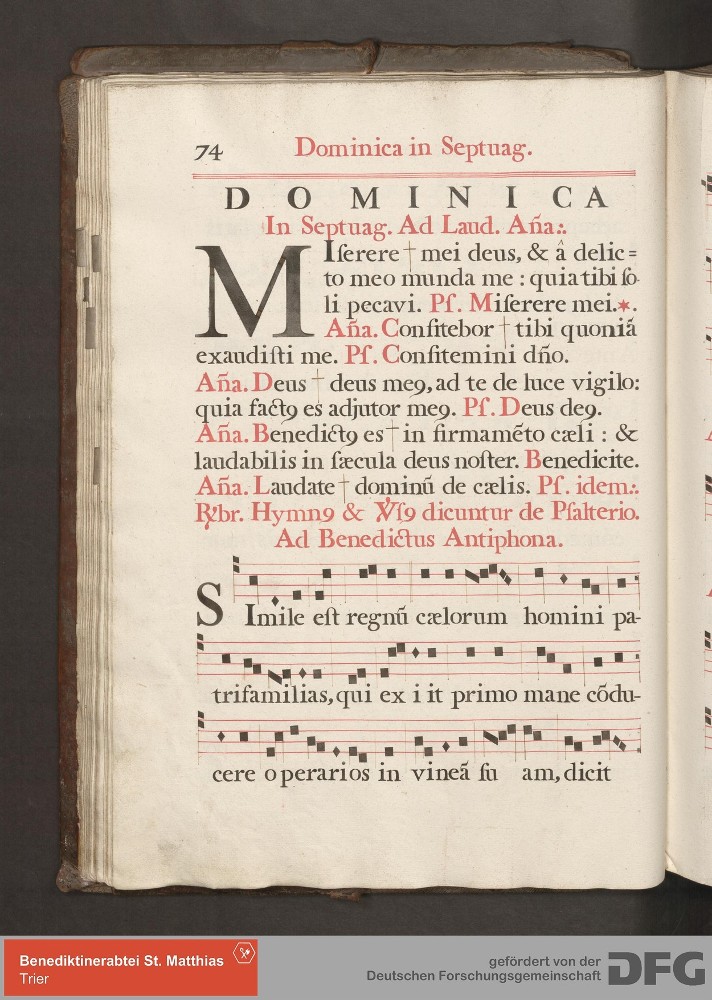 74 Dominica in Septuag.
DOMINICA
In Septuag. Ad Laud. Aña.:.
MIſerere † mei deus, & â delic=
to meo munda me : quia tibi ſo-
li pecavi. Pſ. Miſerere mei.*.
Aña. Confitebor † tibi quoniã
exaudiſti me. Pſ. Confitemini dño.
Aña. Deus † deus meꝯ, ad te de luce vigilo:
quia factꝯ es adjutor meꝯ. Pſ. Deus deꝯ.
Aña. Benedictꝯ es † in firmamẽto cæli : &
laudabilis in fæcula deus noſter. Benedicite.
Aña. Laudate † dominũ de cælis. Pſ. idem.:.
R̷br. Hymnꝯ & V̷ſꝯ dicuntur de Pſalterio.
Ad Benedictus Antiphona.
SImile eſt regnũ cælorum homini pa-
trifamilias, qui ex i it primo mane cõdu-
cere operarios in vineã ſu am, dicit
Benediktinerabtei St. Matthias
Trier
gefördert von der
Deutschen Forschungsgemeinschaft
DFG